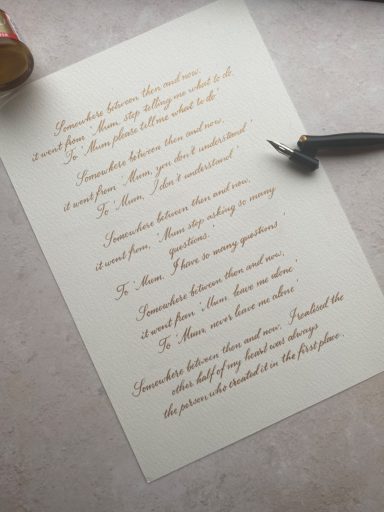 Somewhere between then and now,
it went from, 'Mum, stop telling me what to do.
To 'Mum please tell me what to do'
Somewhere between then and now,
it went from 'Mum, you don't understand'
To 'Mum, I don't understand'
Somewhere between then and now,
it went from, 'Mum stop asking so many
questions.'
To 'Mum. I have so many questions'
Somewhere between then and now,
it went from 'Mum leave me alone'
To 'Mum, never leave me alone'
Somewhere between then and now. I realised the
other half of my heart was always
the person who created it in the first place.